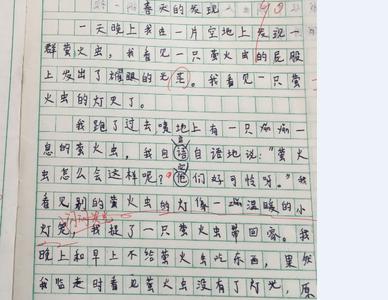 春天的发现 98
一天晚上我在一片空地上发现一
群萤火虫，我看见一只萤火虫的屁股
上发出了耀眼的光茫。我看见一只萤
火虫的灯灭了。
我跑了过去嗅地上有一只奄奄一
息的萤火虫，我自语自语地说："萤火
虫怎么会这样呢？他们好可怜呀。"我
看见别的萤火虫的灯像一温暖的小
灯笼，我捉了一只萤火虫带回家。我
晚上和早上不给萤火虫吃东西，果然
我临走时看见萤火虫没有了灯光，原